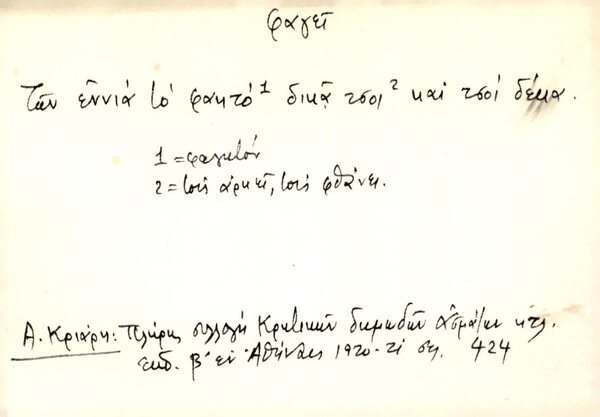 φαγεῖ
Τῶν ἐννιά τὸ φαητό¹ δικᾷ τσοι² καὶ τσοί δέκα.
1 = φαγητόν
2 = τούς ἀρκεῖ, τούς φθάνει.
Α. Κριάρη: Πλήρης συλλογή Κρητικῶν δημωδῶν ἀσμάτων κτλ.
ἐκδ. β΄ ἐν Ἀθήναις 1920 σελ. 424